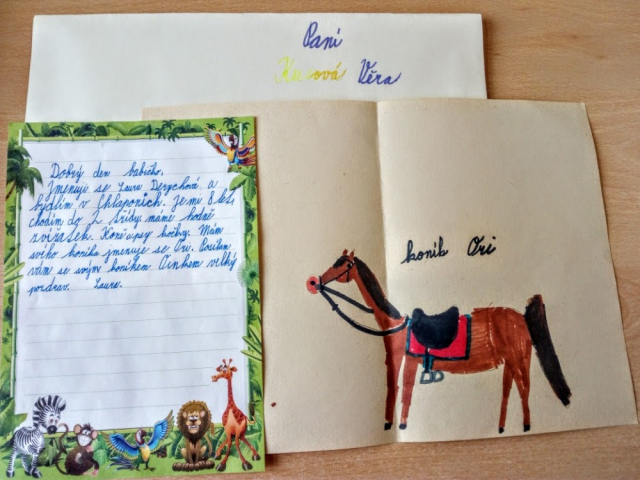 Paní
Ku ová Věra
Dobrý den babičko.
Jmenuji se Laura Derychová a
bydlím v Šklaponich. Je mi 8 let,
chodím do 2 třídy máme hodně
zvířátek. Koně, psy kočky. Mám
svého koníka jmenuje se Ori. Posílam
vám se svým koníkem Orihem velký
pozdrav. Laura.
koník Ori